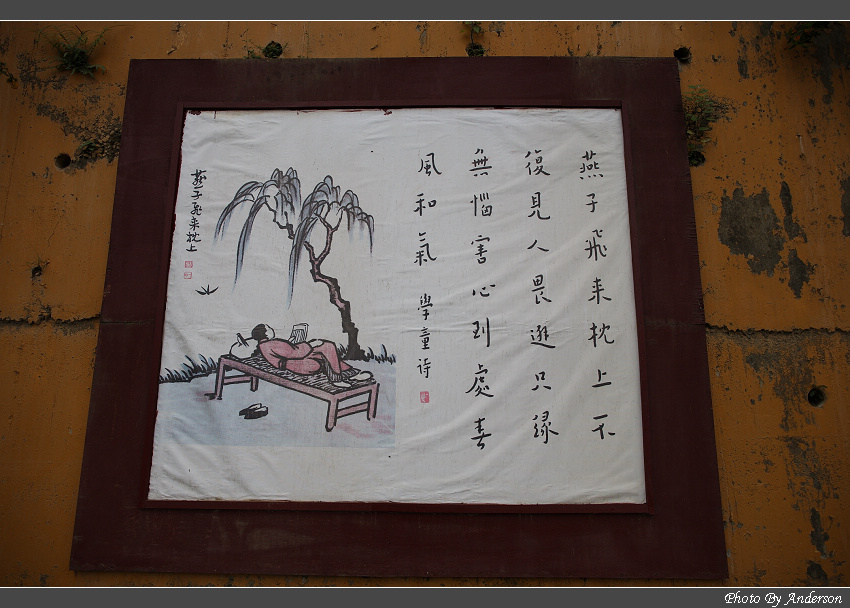 燕子飛来枕上不
復見人畏避只緣
無惱害心到處春
風和氣 學童詩
燕子飛来枕上
Photo By Anderson